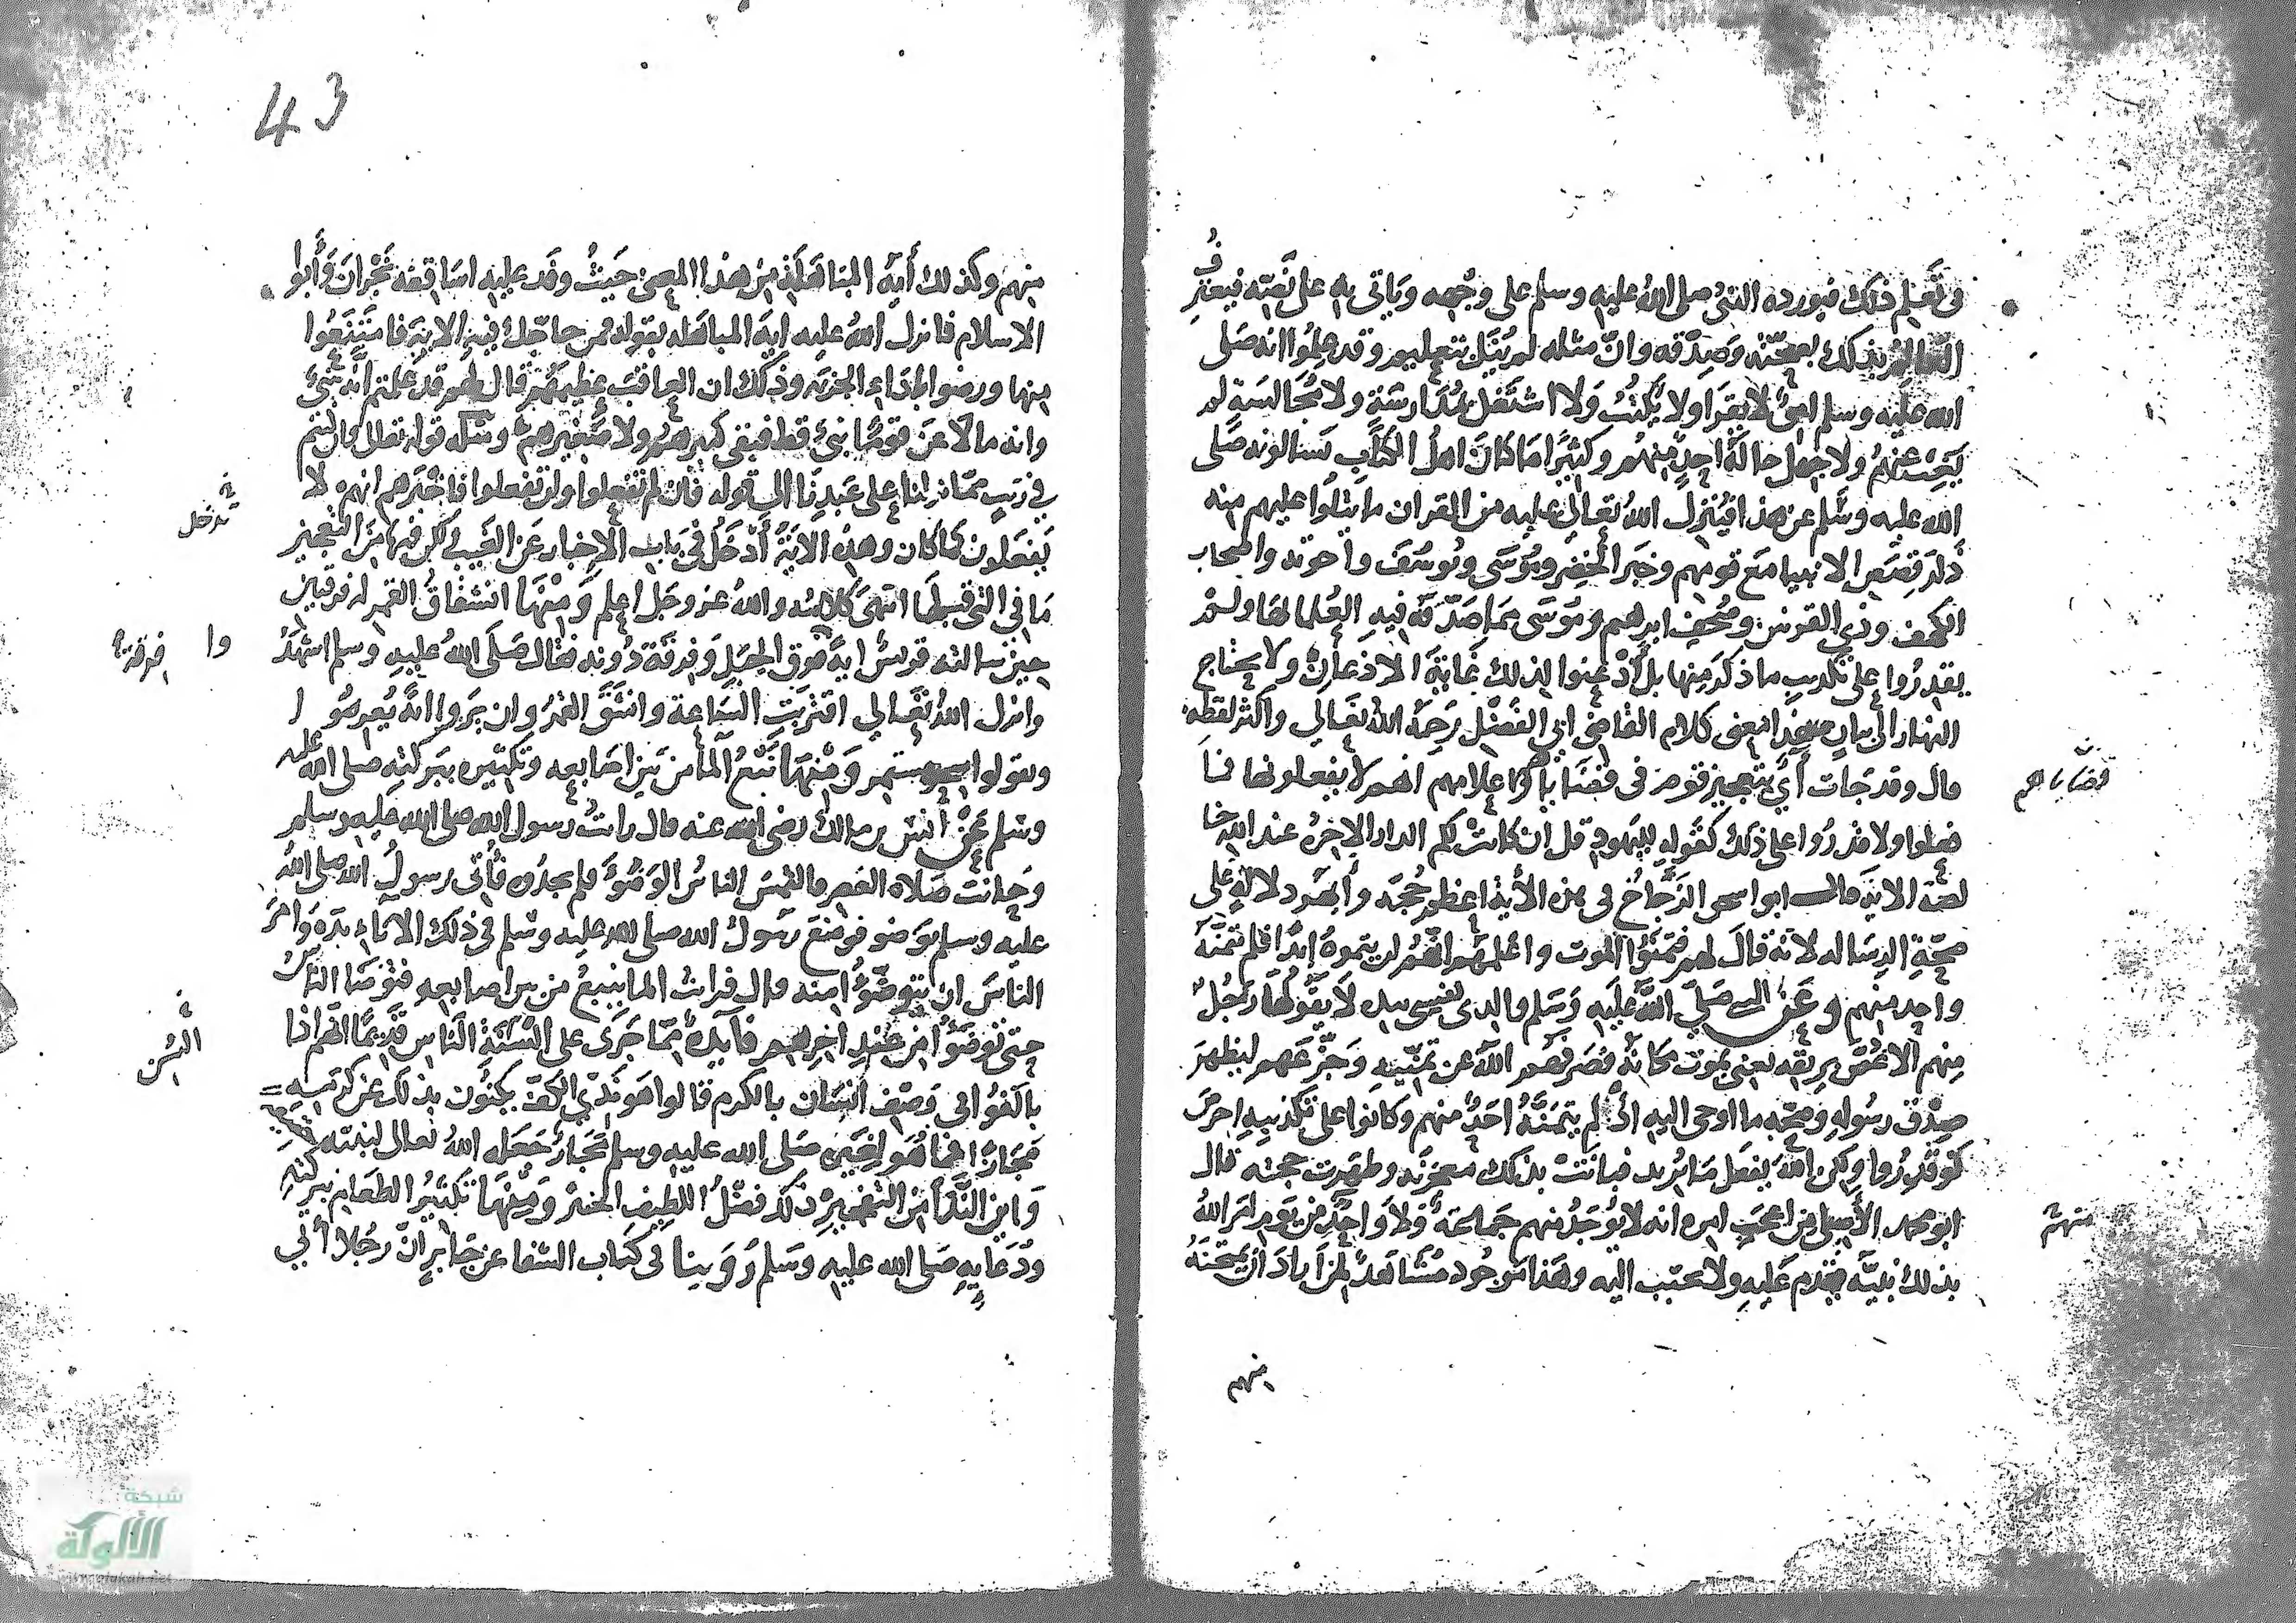 في تعلم ذلك فيورده النبي صلى الله عليه وسلم على وجهه وياتي به على نصه فيعترف
العالم بذلك بصحته وصدقه وان مثله لم ينل بتعليم وقد علموا انه صلى
الله عليه وسلم امي لا يقرا ولا يكتب ولا اشتغل بمدارسة ولا مجالسة لم
يغب عنهم ولا جهل حاله احد منهم وكثيرا ما كان اهل الكتاب يسالونه صلى
الله عليه وسلم عن هذا فينزل الله تعالى عليه من القران ما يتلوا عليهم منه
ذكر قصص الانبيا مع قومهم وخبر الخضر وموسى ويوسف واخوته واصحاب
الكهف وذي القرنين وصحف ابرهيم وموسى مما صدقه فيه العلما لها ولم
يقدروا على تكذيب ما ذكر منها بل اذعنوا لذلك غاية الاذعان ولا يحتاج
النهار الى بيان انتهى كلام القاضي ابي الفضل رحمه الله تعالى واكثر لفظه
قال وقد جات اي بتعجيز قوم في قضايا واعلامهم انهم لا يفعلونها فما
قضاياهم
فعلوا ولا قدروا على ذلك كقوله لليهود قل ان كانت لكم الدار الاخرة عند الله خا
لصة الاية قال ابو اسحق الزجاج في هذه الاية اعظم حجة وأبهر دلالة على
صحة الرسالة لانه قال لهم فتمنوا الموت واعلمهم انهم لن يتمنوه ابدا فلم يتمنه
واحد منهم وعن النبي صلى الله عليه وسلم والذي نفسي بيده لا يقولها رجل
منهم الا غص بريقه يعني يموت مكانه فصرفهم الله عن تمنيه وجزعهم ليظهر
صدق رسوله وصحة ما اوحى اليه اذ لم يتمنه احد منهم وكانوا على تكذيبه احرص
لو قدروا ولكن الله يفعل ما يريد فبانت بذلك معجزته وظهرت حجته قال
ابو محمد الأصيلي من اعجب امره انه لا يوجد منهم جماعة ولا واحد من يوم امر الله
منهم
بذلك نبيه يقدم عليه ولا يجيب اليه وهذا موجود مشاهد لمن اراد ان يمتحنه
منهم
43
منهم وكذلك أية المباهلة من هذا المعنى حيث وفد عليه اساقفة نجران وأبوا
الاسلام فانزل الله عليه اية المباهلة بقوله فمن حاجك فيه الاية فامتنعوا
منها ورضوا باداء الجزية وذلك ان العاقب عظيمهم قال لهم قد علمتم انه نبي
وانه ما لاعن قوما نبي قط فبقي كبيرهم ولا صغيرهم ومثله قوله تعالى وان كنتم
في ريب مما نزلنا على عبدنا الى قوله فان لم تفعلوا ولن تفعلوا فاخبرهم انهم لا
تدخل
يفعلون كما كان وهذه الاية أدخل في باب الاخبار عن الغيب لكن فيها من التعجيز
ما في التي قبلها انتهى كلامه والله عز وجل اعلم ومنها انشقاق القمر له فرقتين
حين سالته قريش اية فوق الجبل وفرقة دونه فقال صلى الله عليه وسلم اشهد
وا فرقة
وانزل الله تعالى اقتربت الساعة وانشق القمر وان يروا اية يعرضوا
ويقولوا سحر مستمر ومنها نبع الما من بين اصابعه وتكثيره ببركته صلى الله عليه
وسلم عن أنس بن مالك رضي الله عنه قال رايت رسول الله صلى الله عليه وسلم
وحانت صلاة العصر فالتمس الناس الوضوء فلم يجدوه فأتي رسول الله صلى الله
عليه وسلم بوضو فوضع رسول الله صلى الله عليه وسلم في ذلك الاناء يده وامر
الناس ان يتوضؤا منه قال فرايت الما ينبع من بين اصابعه فتوضا الناس
حتى توضؤا من عند اخرهم فايدة مما جرى على السنة الناس قديما انهم اذا
السن
بالغوا في وصف انسان بالكرم قالوا هو ندي الكف يكنون بذلك عن كرمه
مجازا فما هو لغير صلى الله عليه وسلم مجاز جعله الله تعالى لنبيه
واين الندا من التفجير ذلك فضل اللطيف الخبير ومنها تكثير الطعام ببركته
ودعايه صلى الله عليه وسلم روينا في كتاب الشفا عن جابر ان رجلا أتى
شبكة
الألوكة
www.alukah.net